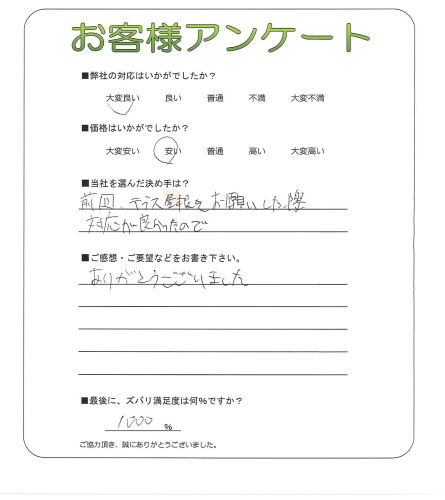 お客様アンケート
■弊社の対応はいかがでしたか?
大変良い 良い 普通 不満 大変不満
■価格はいかがでしたか?
大変安い 安い 普通 高い 大変高い
■当社を選んだ決め手は?
前回、テラス屋根をお願いした際
対応が良かったので
■ご感想・ご要望などをお書き下さい。
ありがとうございました
■最後に、ズバリ満足度は何%ですか?
1000 %
ご協力頂き、誠にありがとうございました。